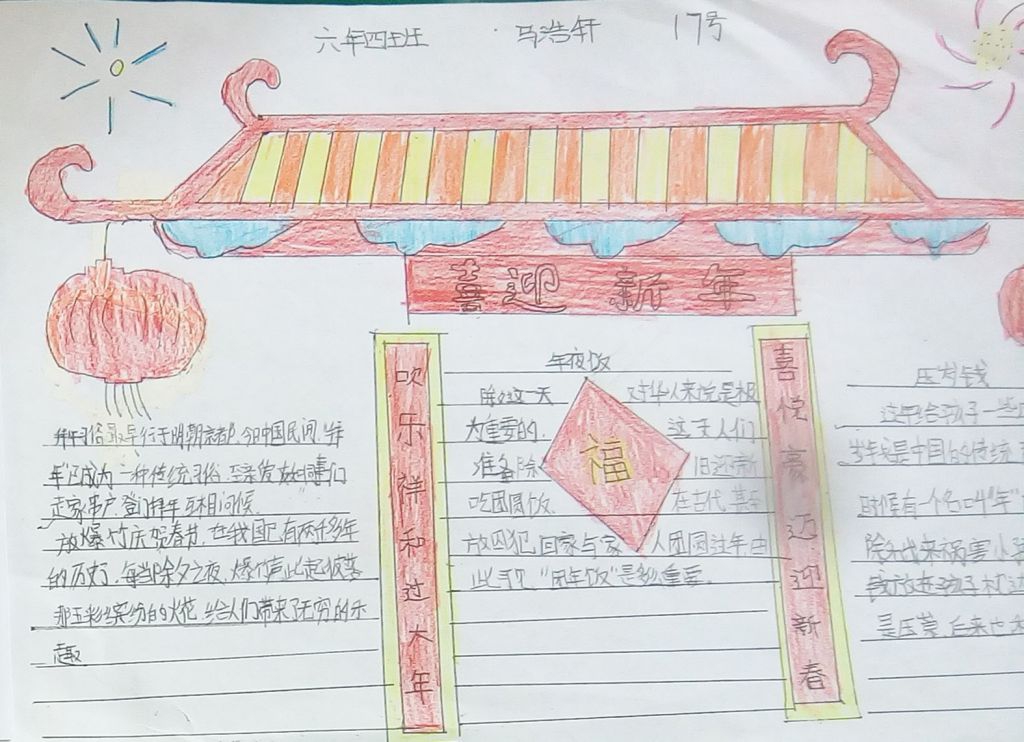 六年四班 马浩轩 17号
喜迎新年
吹乐祥和过大年
喜悦豪迈迎新春
拜年习俗最早行于明朝京都,今日中国民间,"拜
年"已成为一种传统习俗,至亲发友
走家串户,登门拜年,互相问候。
放爆竹庆贺春节,在我国已有两千多年
的历史,每当除夕之夜,爆竹声此起彼落
那五彩缤纷的火花,给人们带来了无穷的乐
趣
年夜饭
除夕这一天 对华人来说是极
为重要的, 这天人们
准备除 旧迎新
吃团圆饭, 在古代,甚至
放囚犯,回家与家 人团圆过年,由
此可见,"团年饭"是多么重要
压岁钱
过年给孩子一些
岁钱是中国的传统
时候有一个名叫"年"
除夕出来祸害小孩
钱放在孩子枕边
是压祟,后来也
福